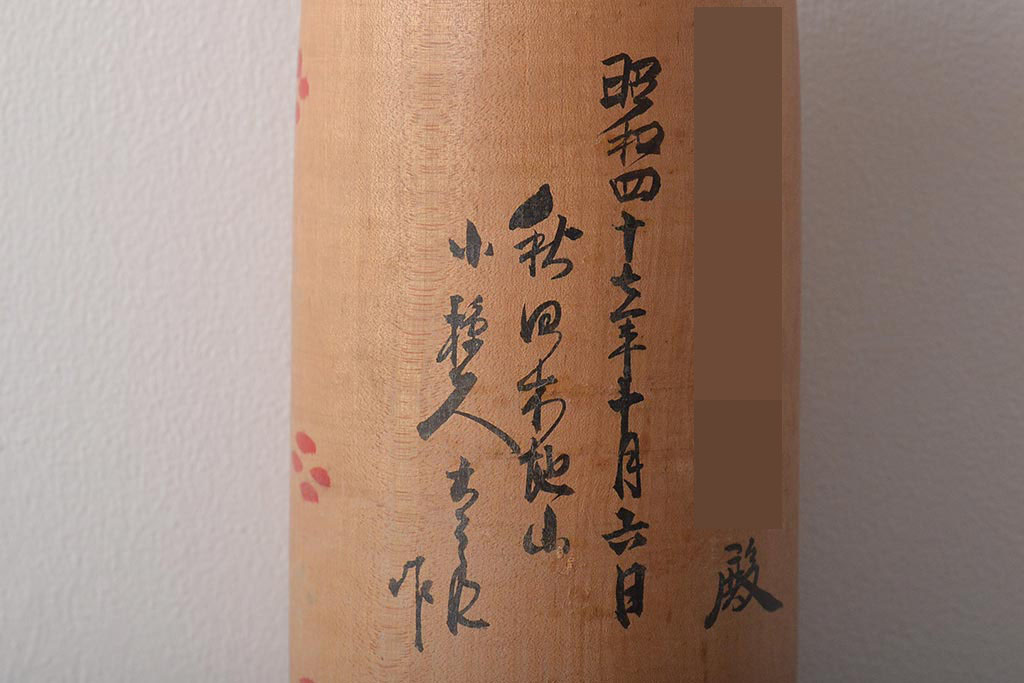 殿
昭和四十七年十月六日
秋田木地山
小椋久太郎
作